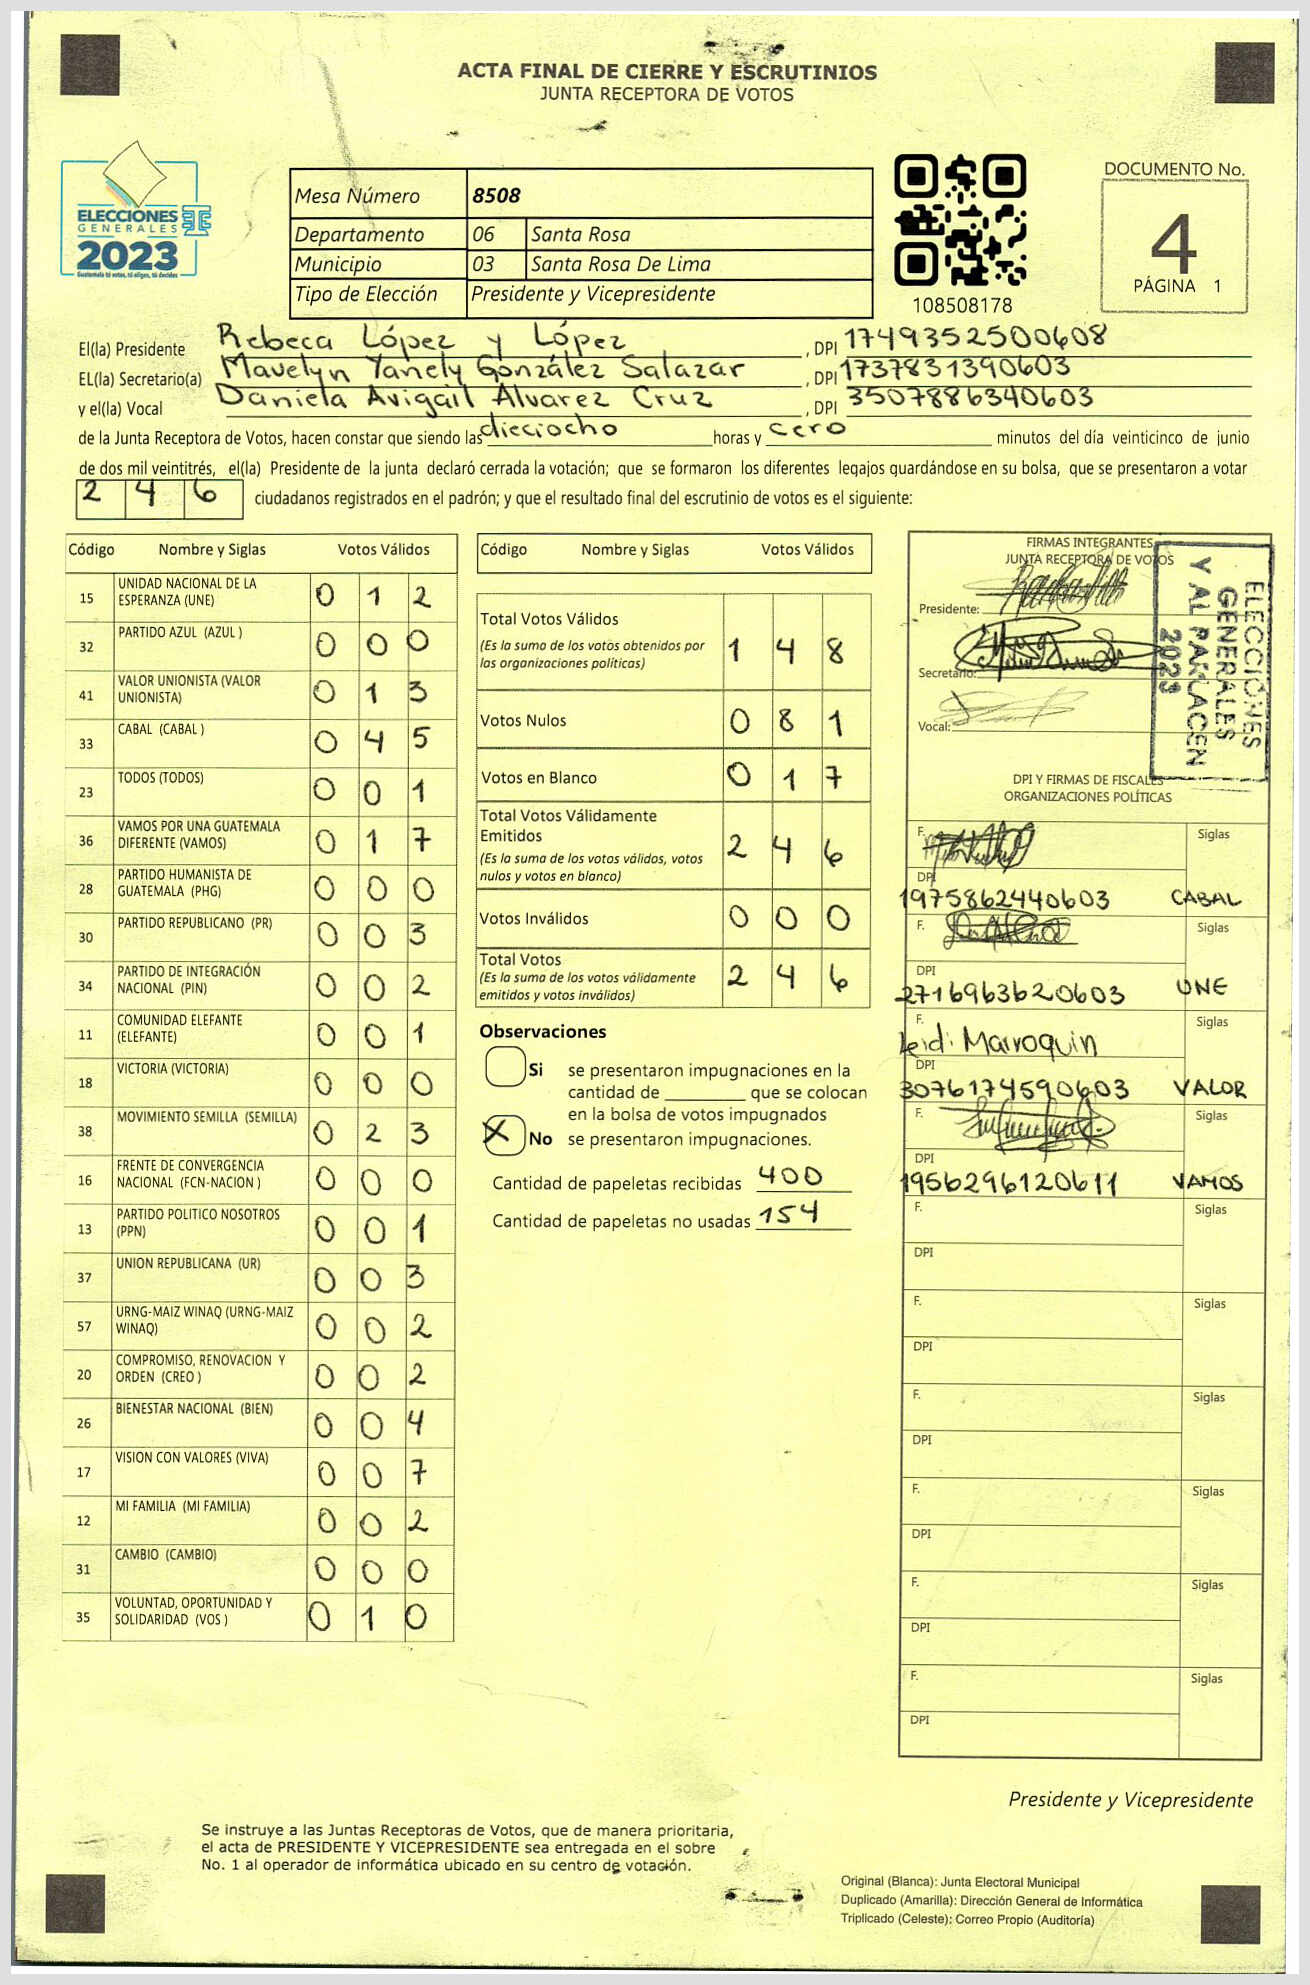 ACTA FINAL DE CIERRE Y ESCRUTINIOS
JUNTA RECEPTORA DE VOTOS
ELECCIONES
GENERALES
2023
Guatemala tú votas, tú eliges, tú decides
Mesa Número 8508
Departamento 06 Santa Rosa
Municipio 03 Santa Rosa De Lima
Tipo de Elección Presidente y Vicepresidente
108508178
DOCUMENTO No.
4
PÁGINA 1
El(la) Presidente Rebeca López y López , DPI 1749352500608
EL(la) Secretario(a) Mavelyn Yanely González Salazar , DPI 1737831390603
y el(la) Vocal Daniela Avigail Alvarez Cruz , DPI 3507886340603
de la Junta Receptora de Votos, hacen constar que siendo las dieciocho horas y cero minutos del día veinticinco de junio
de dos mil veintitrés, el(la) Presidente de la junta declaró cerrada la votación; que se formaron los diferentes legajos guardándose en su bolsa, que se presentaron a votar
2 4 6 ciudadanos registrados en el padrón; y que el resultado final del escrutinio de votos es el siguiente:
Código Nombre y Siglas Votos Válidos
15 UNIDAD NACIONAL DE LA ESPERANZA (UNE) 0 1 2
32 PARTIDO AZUL (AZUL ) 0 0 0
41 VALOR UNIONISTA (VALOR UNIONISTA) 0 1 3
33 CABAL (CABAL ) 0 4 5
23 TODOS (TODOS) 0 0 1
36 VAMOS POR UNA GUATEMALA DIFERENTE (VAMOS) 0 1 7
28 PARTIDO HUMANISTA DE GUATEMALA (PHG) 0 0 0
30 PARTIDO REPUBLICANO (PR) 0 0 3
34 PARTIDO DE INTEGRACIÓN NACIONAL (PIN) 0 0 2
11 COMUNIDAD ELEFANTE (ELEFANTE) 0 0 1
18 VICTORIA (VICTORIA) 0 0 0
38 MOVIMIENTO SEMILLA (SEMILLA) 0 2 3
16 FRENTE DE CONVERGENCIA NACIONAL (FCN-NACION ) 0 0 0
13 PARTIDO POLITICO NOSOTROS (PPN) 0 0 1
37 UNION REPUBLICANA (UR) 0 0 3
57 URNG-MAIZ WINAQ (URNG-MAIZ WINAQ) 0 0 2
20 COMPROMISO, RENOVACION Y ORDEN (CREO ) 0 0 2
26 BIENESTAR NACIONAL (BIEN) 0 0 4
17 VISION CON VALORES (VIVA) 0 0 7
12 MI FAMILIA (MI FAMILIA) 0 0 2
31 CAMBIO (CAMBIO) 0 0 0
35 VOLUNTAD, OPORTUNIDAD Y SOLIDARIDAD (VOS ) 0 1 0
Código Nombre y Siglas Votos Válidos
Total Votos Válidos
(Es la suma de los votos obtenidos por
las organizaciones políticas) 1 4 8
Votos Nulos 0 8 1
Votos en Blanco 0 1 7
Total Votos Válidamente
Emitidos
(Es la suma de los votos válidos, votos
nulos y votos en blanco) 2 4 6
Votos Inválidos 0 0 0
Total Votos
(Es la suma de los votos válidamente
emitidos y votos inválidos) 2 4 6
Observaciones
Si se presentaron impugnaciones en la
cantidad de ________ que se colocan
en la bolsa de votos impugnados
X No se presentaron impugnaciones.
Cantidad de papeletas recibidas 400
Cantidad de papeletas no usadas 154
FIRMAS INTEGRANTES
JUNTA RECEPTORA DE VOTOS
Presidente:
Secretario:
Vocal:
ELECCIONES
GENERALES
Y AL PARLACEN
2023
DPI Y FIRMAS DE FISCALES
ORGANIZACIONES POLÍTICAS
F. Siglas
DPI
1975862440603 CABAL
F. Siglas
DPI
2716963620603 UNE
F. Siglas
Leidi Marroquin
DPI
3076174590603 VALOR
F. Siglas
DPI
1956296120611 VAMOS
F. Siglas
DPI
F. Siglas
DPI
F. Siglas
DPI
F. Siglas
DPI
F. Siglas
DPI
F. Siglas
DPI
Presidente y Vicepresidente
Se instruye a las Juntas Receptoras de Votos, que de manera prioritaria,
el acta de PRESIDENTE Y VICEPRESIDENTE sea entregada en el sobre
No. 1 al operador de informática ubicado en su centro de votación.
Original (Blanca): Junta Electoral Municipal
Duplicado (Amarilla): Dirección General de Informática
Triplicado (Celeste): Correo Propio (Auditoría)